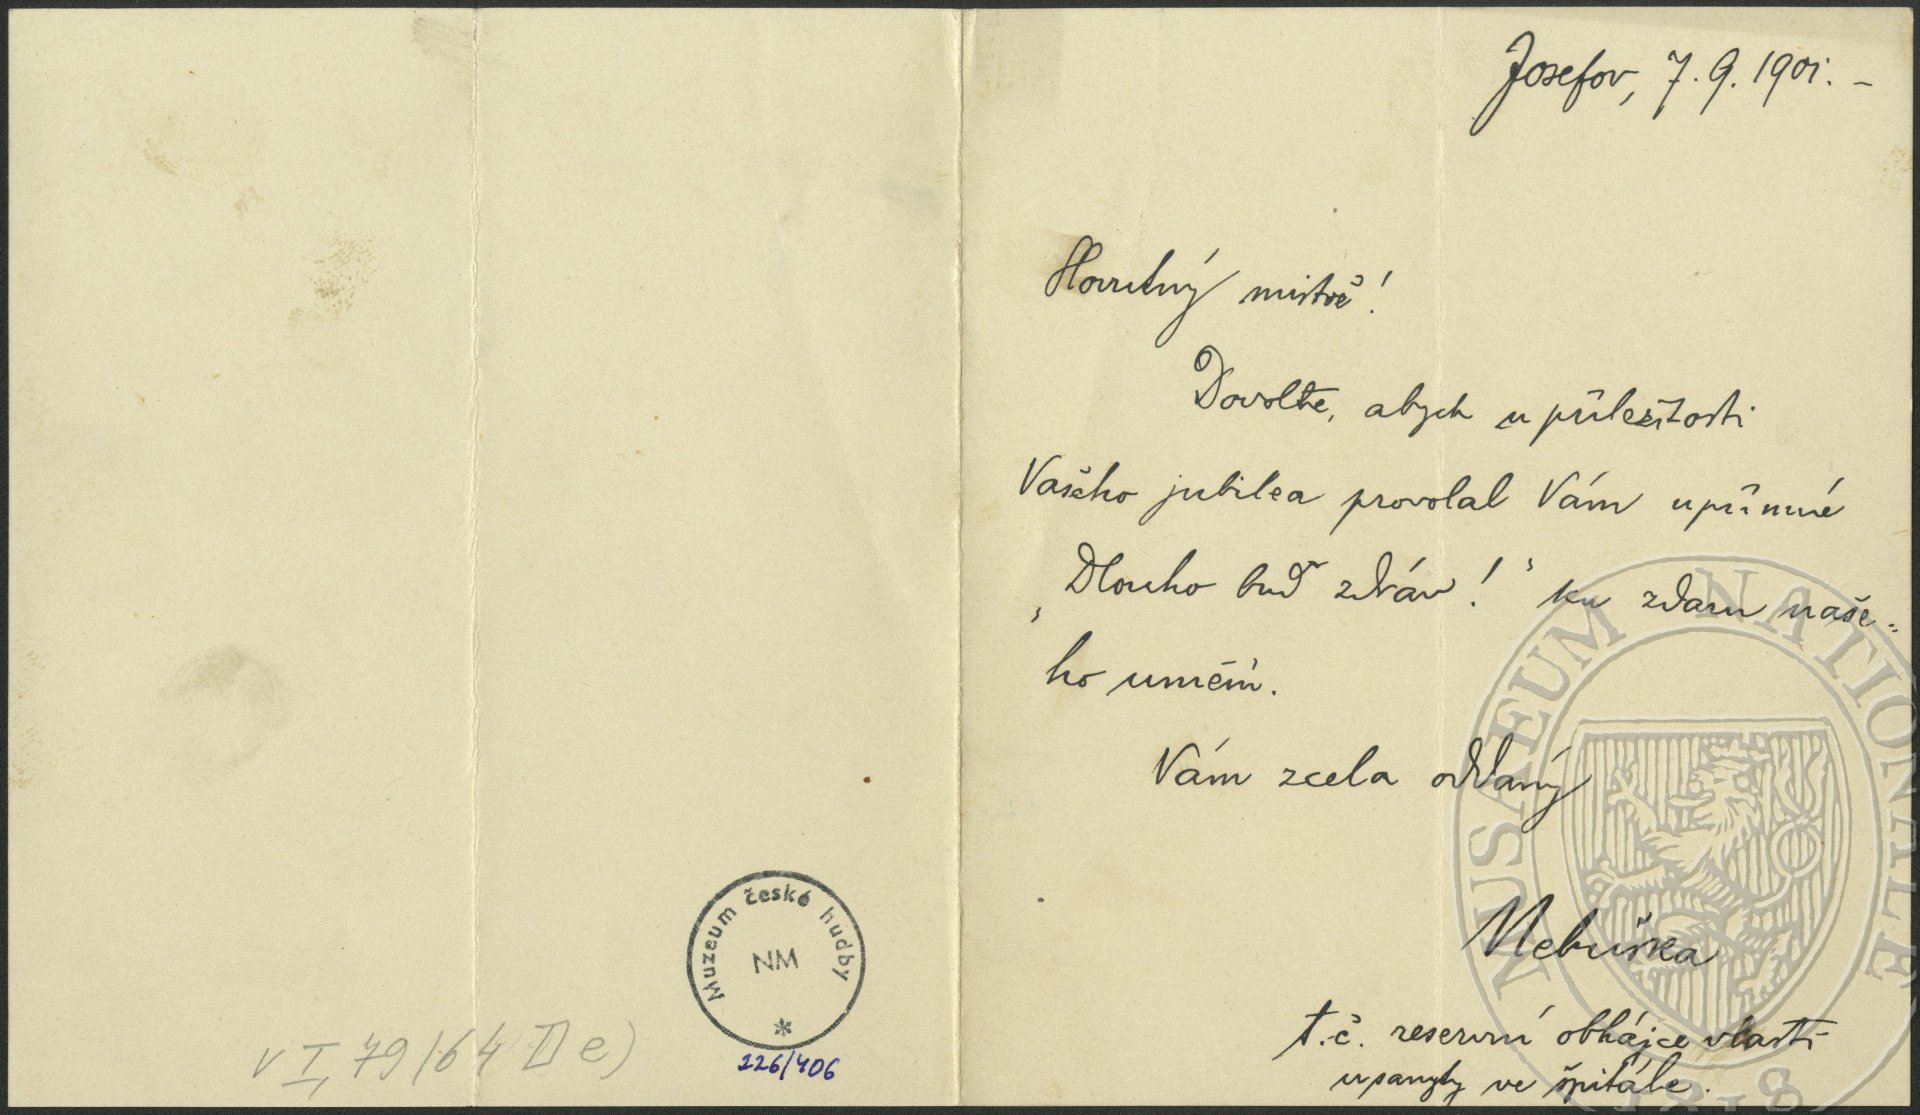 Josefov, 7. 9. 1901. -
Slovutný mistře!
Dovolte, abych u příležitosti
Vašeho jubilea provolal Vám upřímné
„Dlouho buď zdráv!“ ku zdaru naše=
ho umění.
Vám zcela oddaný
Nebuška
t. č. reservní obhájce vlasti
upsaný ve špitále.
Muzeum české hudby
NM
*
226/406
v I, 79/64 D e)
MUSAEUM NATIONALE
1818